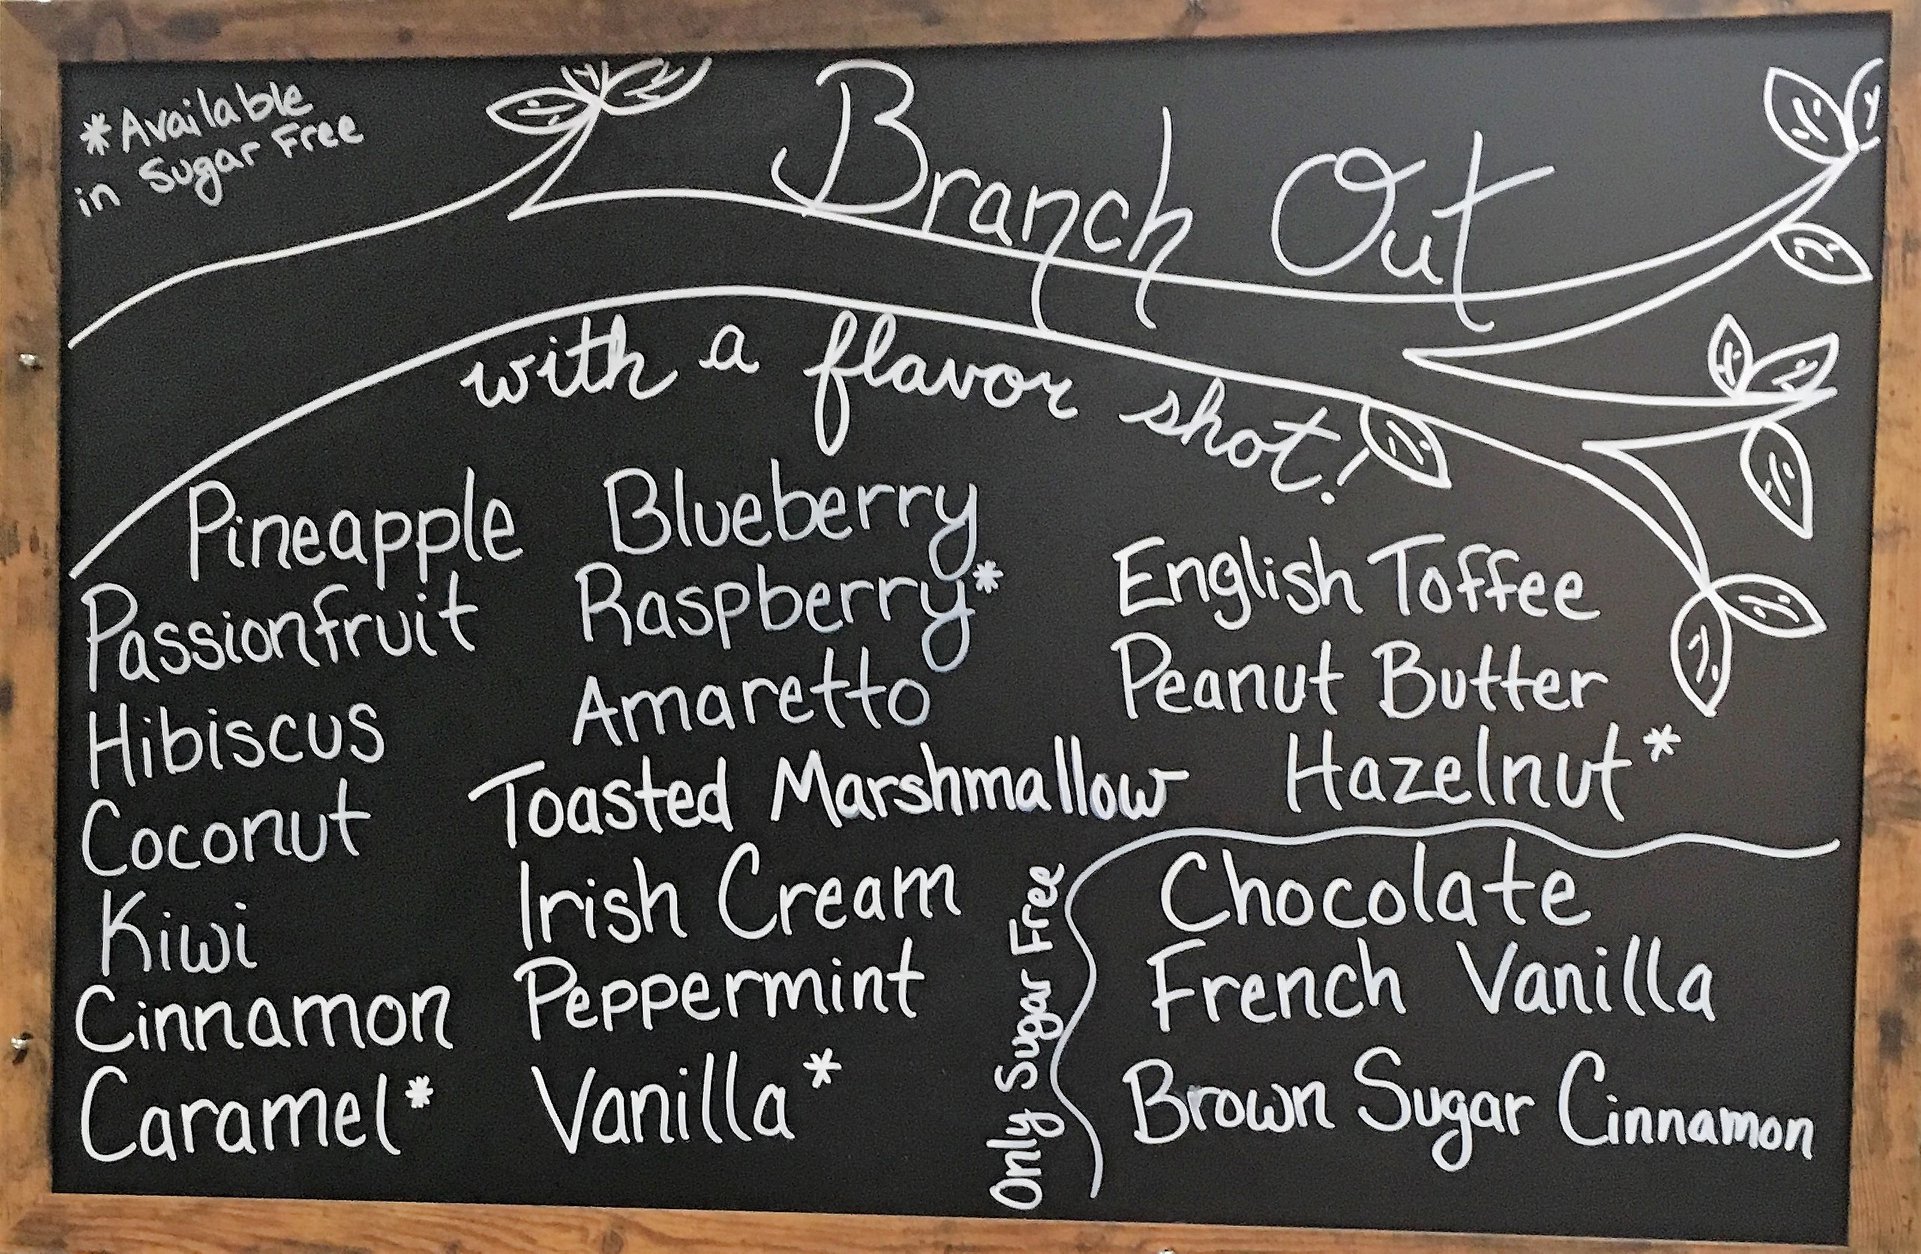 *Available
in Sugar Free
Branch Out
with a flavor shot!
Pineapple
Passionfruit
Hibiscus
Coconut
Kiwi
Cinnamon
Caramel*
Blueberry
Raspberry*
Amaretto
Toasted Marshmallow
Irish Cream
Peppermint
Vanilla*
English Toffee
Peanut Butter
Hazelnut*
Only Sugar Free
Chocolate
French Vanilla
Brown Sugar Cinnamon